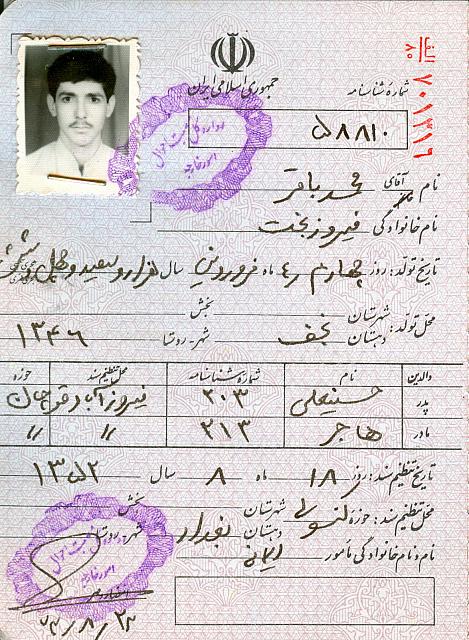 جمهوری اسلامی ایران
شمارهٔ شناسنامه
۵۸۸۱۰
الف ۸۰ ۷۰۱۳۱۹
نام آقای محمدباقر
نام خانوادگی فیروزبخت
تاریخ تولد: روز چهارم ۴ ماه فروردین سال هزار و سیصد و چهل و شش
محل تولد: شهرستان دهستان نجف بخش شهر-روستا ۱۳۴۶
والدین نام شمارهٔ شناسنامه محل تنظیم سند حوزه
پدر حسینعلی ۲۰۳ فیروزآباد
مادر هاجر ۲۱۳ // //
تاریخ تنظیم سند: روز ۱۸ ماه ۸ سال ۱۳۵۲
محل تنظیم سند: حوزه شهرستان دهستان بغداد بخش شهر-روستا
نام و نام خانوادگی مأمور
امور خارجه